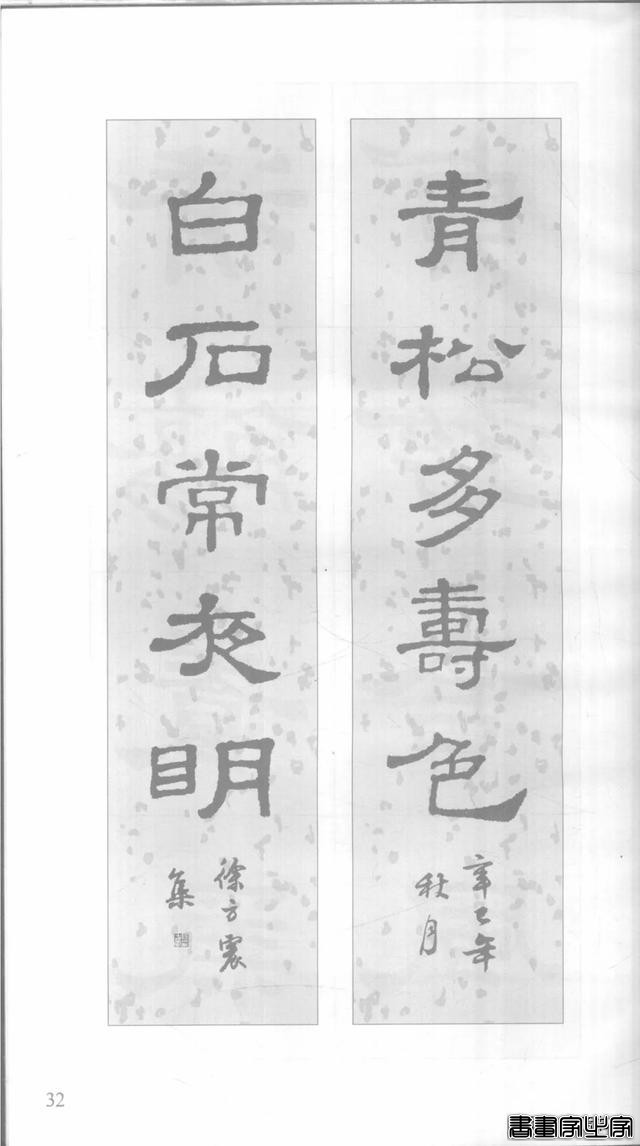 青松多壽色
辛巳年
秋月
白石常夜明
徐方震
集
32
書畫字中字